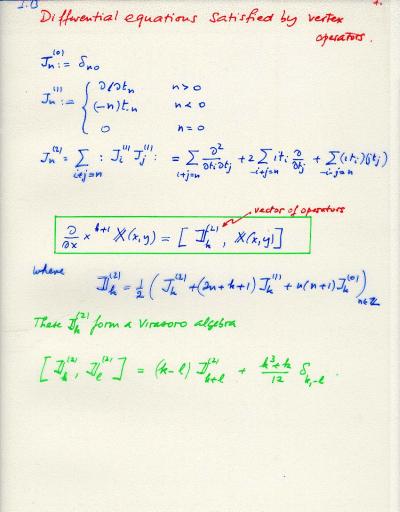 I.13
1.
Differential equations satisfied by vertex
operators.
J_n^{(0)} := δ_{n0}
J_n^{(1)} := { ∂/∂t_n   n > 0
(-n)t_{-n}   n < 0
0   n = 0
J_n^{(2)} = ∑_{i+j=n} : J_i^{(1)} J_j^{(1)} : = ∑_{i+j=n} ∂²/∂t_i∂t_j + 2 ∑_{-i+j=n} i t_i ∂/∂t_j + ∑_{-i-j=n} (i t_i)(j t_j)
vector of operators
∂/∂x x^{k+1} 𝕏(x,y) = [ 𝕁_k^{(2)}, 𝕏(x,y) ]
where
𝕁_k^{(2)} = 1/2 ( J_k^{(2)} + (2n+k+1) J_k^{(1)} + n(n+1) J_k^{(0)} )_{n∈ℤ}
These 𝕁_k^{(2)} form a Virasoro algebra
[ 𝕁_k^{(2)}, 𝕁_l^{(2)} ] = (k-l) 𝕁_{k+l}^{(2)} + (k³+k)/12 δ_{k,-l} .